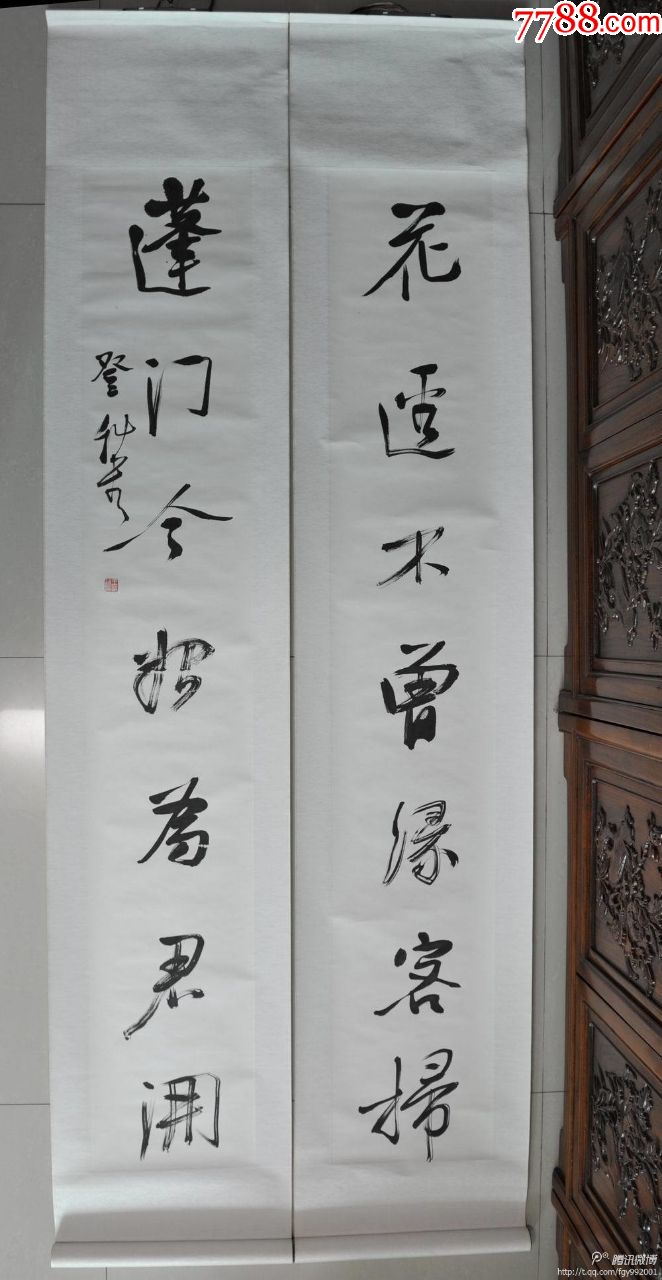 7788.com
花逕不曾缘客掃
蓬门今始為君開
登科
腾讯微博
http://t.qq.com/fgy992001